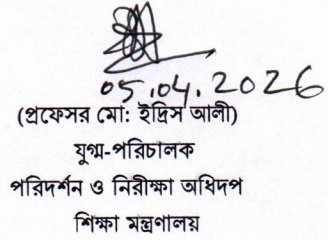 05.04.2026
(প্রফেসর মো: ইদ্রিস আলী)
যুগ্ম-পরিচালক
পরিদর্শন ও নিরীক্ষা অধিদপ
শিক্ষা মন্ত্রণালয়